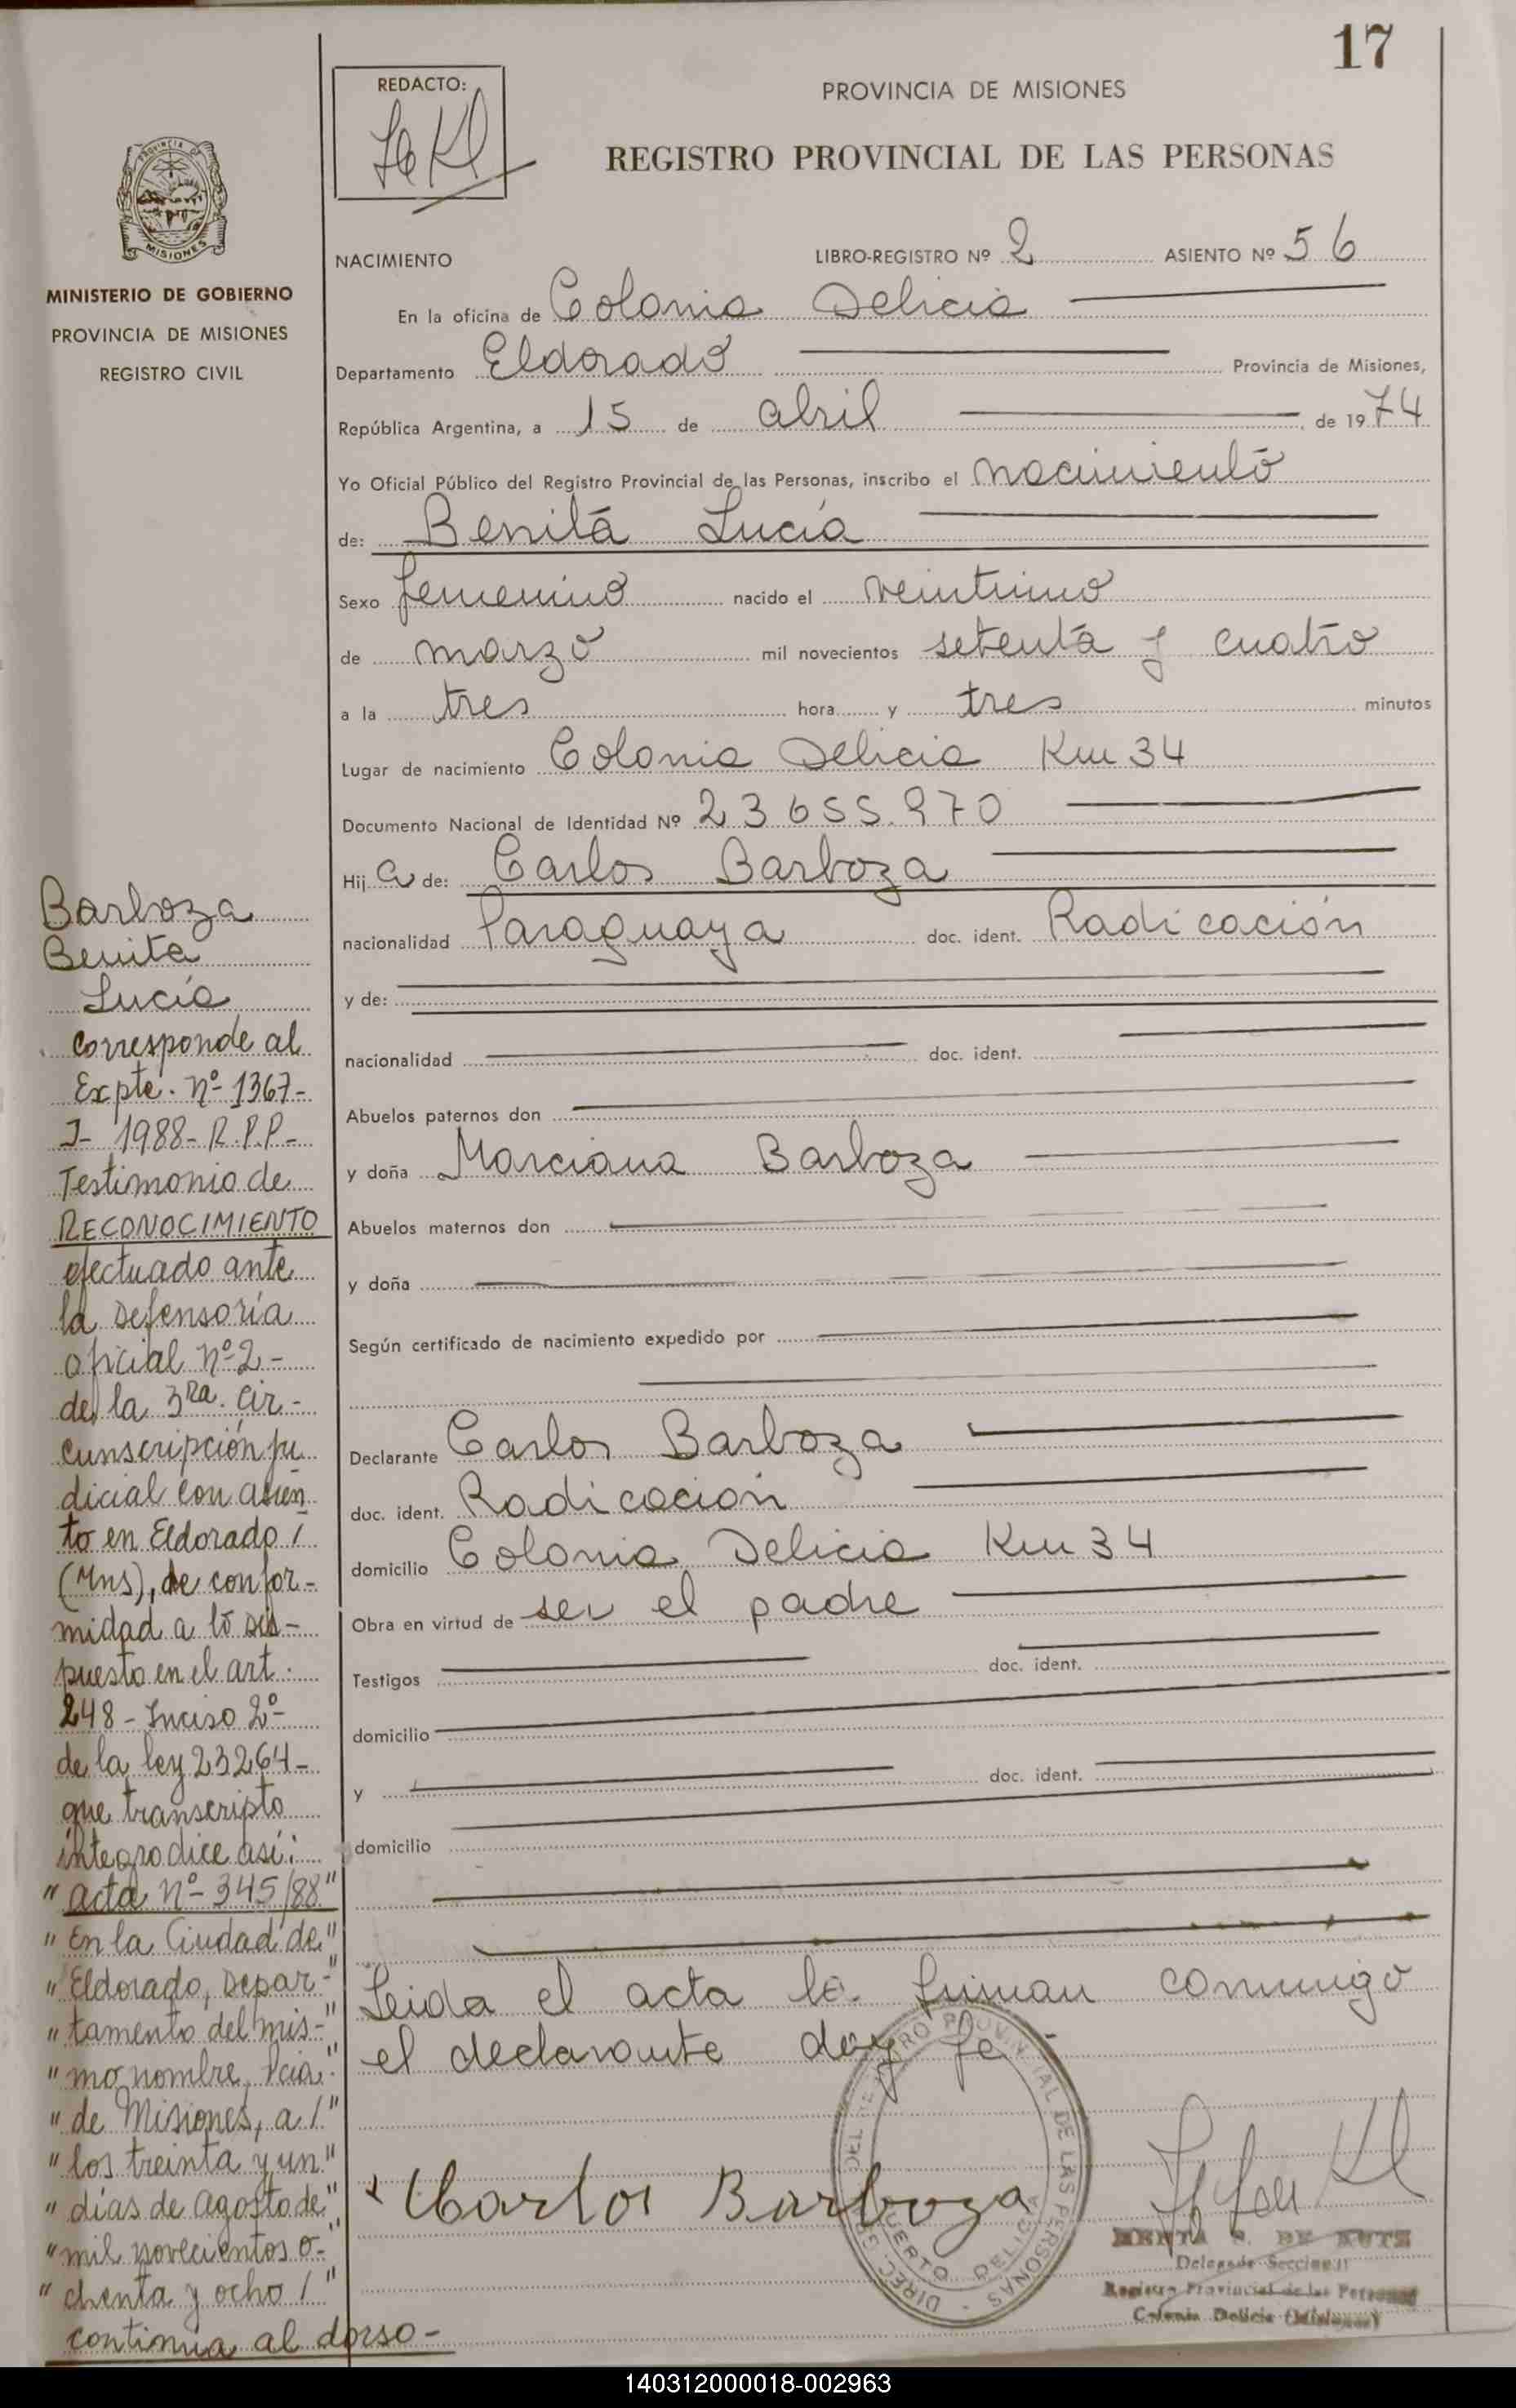 17
REDACTO:
PROVINCIA DE MISIONES
REGISTRO PROVINCIAL DE LAS PERSONAS
PROVINCIA DE
MISIONES
MINISTERIO DE GOBIERNO
PROVINCIA DE MISIONES
REGISTRO CIVIL
NACIMIENTO LIBRO-REGISTRO Nº 2 ASIENTO Nº 56
En la oficina de Colonia Delicia
Departamento Eldorado Provincia de Misiones,
República Argentina, a 15 de abril de 1974
Yo Oficial Público del Registro Provincial de las Personas, inscribo el nacimiento
de: Benita Lucía
Sexo femenino nacido el veintiuno
de marzo mil novecientos setenta y cuatro
a la tres hora y tres minutos
Lugar de nacimiento Colonia Delicia Km 34
Documento Nacional de Identidad Nº 23655.970
Hija de: Carlos Barboza
nacionalidad Paraguaya doc. ident. Radicación
y de:
nacionalidad doc. ident.
Abuelos paternos don
y doña Marciana Barboza
Abuelos maternos don
y doña
Según certificado de nacimiento expedido por
Declarante Carlos Barboza
doc. ident. Radicación
domicilio Colonia Delicia Km 34
Obra en virtud de ser el padre
Testigos doc. ident.
domicilio
y doc. ident.
domicilio
Leida el acta la firman conmigo
el declarante doy fe
Carlos Barboza
DIREC. GRAL. DEL REGISTRO PROVINCIAL DE LAS PERSONAS
PUERTO DELICIA
DE KUTZ
Delegada Seccional
Registro Provincial de las Personas
Colonia Delicia (Misiones)
Barboza
Benita
Lucía
Corresponde al
Expte. Nº 1367-
J- 1988- R.P.P-
Testimonio de
RECONOCIMIENTO
efectuado ante
la Defensoría
oficial nº 2-
de la 3ra. Cir-
cunscripción ju
dicial con asien
to en Eldorado /
(Mns), de confor-
midad a lo dis-
puesto en el art.
248 - Inciso 2º-
de la ley 23264-
que transcripto
integro dice así:
"acta nº 345/88"
"En la Ciudad de"
"Eldorado, Depar-"
"tamento del mis-"
"mo nombre, Pcia."
"de Misiones, a /"
"los treinta y un"
"días de agosto de"
"mil novecientos o-"
"chenta y ocho /"
continúa al dorso-
140312000018-002963